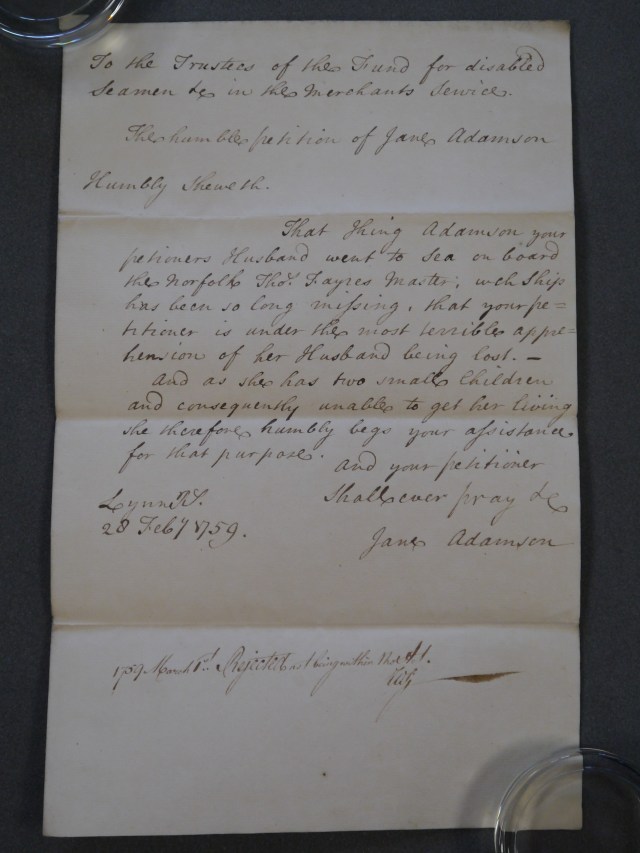 To the Trustees of the Fund for disabled
Seamen &c in the Merchants Service.
The humble petition of Jane Adamson
Humbly Sheweth.
That Thing Adamson your
petioners Husband went to Sea on board
the Norfolk Thos. Fayres Master; wch Ship
has been so long missing, that your pe=
titioner is under the most terrible appre=
hension of her Husband being lost. –
And as she has two small Children
and consequently unable to get her living
she therefore humbly begs your assistance
for that purpose.
And your petitioner
shall ever pray &c
Lynn Rs.
28 Feby 1759.
Jane Adamson
1759 March 1st. Rejected as not being within the Act.